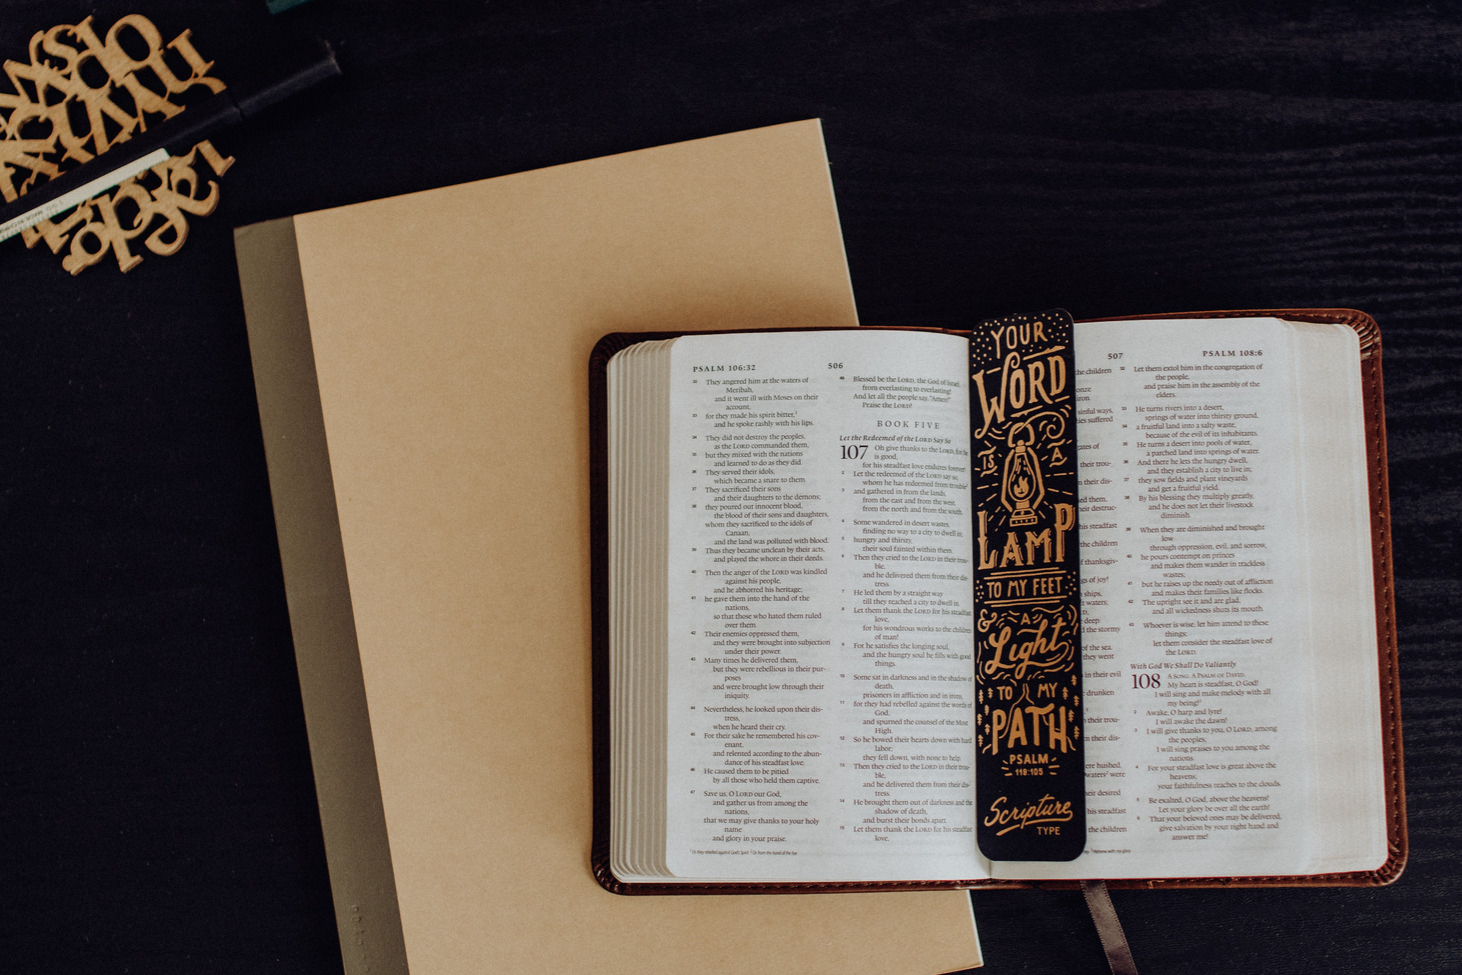 PSALM 106:32
506
32 They angered him at the waters of
Meribah,
and it went ill with Moses on their
account,
33 for they made his spirit bitter,¹
and he spoke rashly with his lips.
34 They did not destroy the peoples,
as the LORD commanded them,
35 but they mixed with the nations
and learned to do as they did.
36 They served their idols,
which became a snare to them.
37 They sacrificed their sons
and their daughters to the demons;
38 they poured out innocent blood,
the blood of their sons and daughters,
whom they sacrificed to the idols of
Canaan,
and the land was polluted with blood.
39 Thus they became unclean by their acts,
and played the whore in their deeds.
40 Then the anger of the LORD was kindled
against his people,
and he abhorred his heritage;
41 he gave them into the hand of the
nations,
so that those who hated them ruled
over them.
42 Their enemies oppressed them,
and they were brought into subjection
under their power.
43 Many times he delivered them,
but they were rebellious in their pur-
poses
and were brought low through their
iniquity.
44 Nevertheless, he looked upon their dis-
tress,
when he heard their cry.
45 For their sake he remembered his cov-
enant,
and relented according to the abun-
dance of his steadfast love.
46 He caused them to be pitied
by all those who held them captive.
47 Save us, O LORD our God,
and gather us from among the
nations,
that we may give thanks to your holy
name
and glory in your praise.
48 Blessed be the LORD, the God of Israel,
from everlasting to everlasting!
And let all the people say, "Amen!"
Praise the LORD!
BOOK FIVE
Let the Redeemed of the LORD Say So
107 Oh give thanks to the LORD, for he
is good,
for his steadfast love endures forever!
2 Let the redeemed of the LORD say so,
whom he has redeemed from trouble
3 and gathered in from the lands,
from the east and from the west,
from the north and from the south.
4 Some wandered in desert wastes,
finding no way to a city to dwell in;
5 hungry and thirsty,
their soul fainted within them.
6 Then they cried to the LORD in their trou-
ble,
and he delivered them from their dis-
tress.
7 He led them by a straight way
till they reached a city to dwell in.
8 Let them thank the LORD for his steadfast
love,
for his wondrous works to the children
of man!
9 For he satisfies the longing soul,
and the hungry soul he fills with good
things.
10 Some sat in darkness and in the shadow of
death,
prisoners in affliction and in irons,
11 for they had rebelled against the words of
God,
and spurned the counsel of the Most
High.
12 So he bowed their hearts down with hard
labor;
they fell down, with none to help.
13 Then they cried to the LORD in their trou-
ble,
and he delivered them from their dis-
tress.
14 He brought them out of darkness and the
shadow of death,
and burst their bonds apart.
15 Let them thank the LORD for his steadfast
love,
YOUR
WORD
IS A
LAMP
TO MY FEET
& A
Light
TO MY
PATH
PSALM
119:105
Scripture
TYPE
507
PSALM 108:6
the children
iron.
sinful ways,
their trou-
their dis-
his steadfast
the children
of thanksgiv-
of joy!
ships,
waters;
deep
the stormy
of the sea.
they went
in their evil
drunken
their trou-
their dis-
were hushed.
waters were
their desired
his steadfast
the children
32 Let them extol him in the congregation of
the people,
and praise him in the assembly of the
elders.
33 He turns rivers into a desert,
springs of water into thirsty ground,
34 a fruitful land into a salty waste,
because of the evil of its inhabitants.
35 He turns a desert into pools of water,
a parched land into springs of water.
36 And there he lets the hungry dwell,
and they establish a city to live in;
37 they sow fields and plant vineyards
and get a fruitful yield.
38 By his blessing they multiply greatly,
and he does not let their livestock
diminish.
39 When they are diminished and brought
low
through oppression, evil, and sorrow,
40 he pours contempt on princes
and makes them wander in trackless
wastes;
41 but he raises up the needy out of affliction
and makes their families like flocks.
42 The upright see it and are glad,
and all wickedness shuts its mouth.
43 Whoever is wise, let him attend to these
things;
let them consider the steadfast love of
the LORD.
With God We Shall Do Valiantly
A SONG. A PSALM OF DAVID.
108 My heart is steadfast, O God!
I will sing and make melody with all
my being!
2 Awake, O harp and lyre!
I will awake the dawn!
3 I will give thanks to you, O LORD, among
the peoples;
I will sing praises to you among the
nations.
4 For your steadfast love is great above the
heavens;
your faithfulness reaches to the clouds.
5 Be exalted, O God, above the heavens!
Let your glory be over all the earth!
6 That your beloved ones may be delivered,
give salvation by your right hand and
answer me!